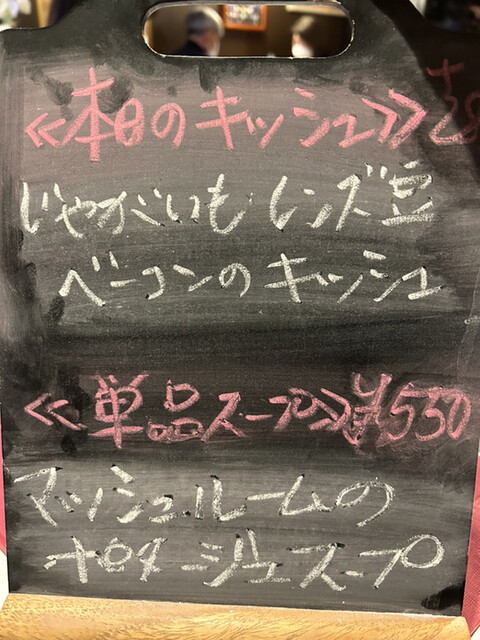 ≪本日のキッシュ≫
じゃがいも レンズ豆
ベーコンのキッシュ
≪単品スープ≫¥550
マッシュルームの
ポタージュスープ